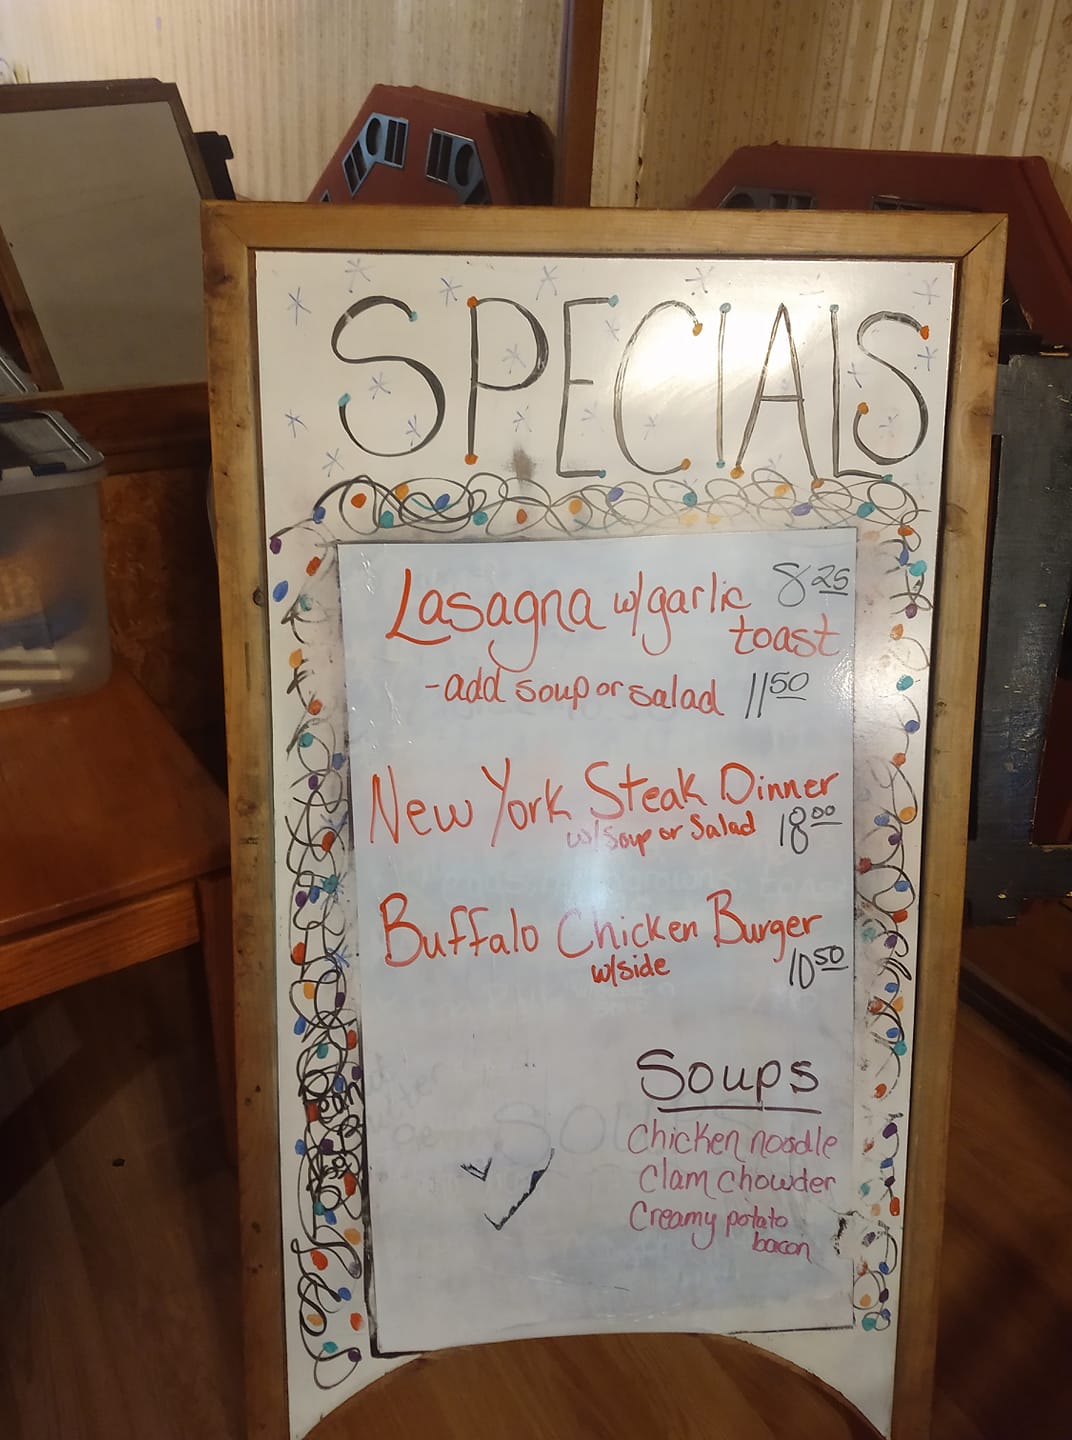 SPECIALS
Lasagna w/garlic 8 25
toast
-add soup or salad 11 50
New York Steak Dinner
w/soup or Salad 18 00
Buffalo Chicken Burger
w/side 10 50
Soups
Chicken noodle
Clam chowder
Creamy potato
bacon